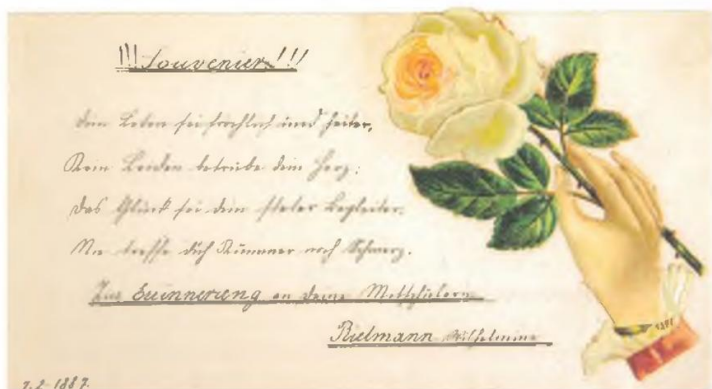 !!! Souvenier!!!
Dein Leben sei froehlich und heiter,
Kein Leiden betrübe dein Herz;
Das Glück sei dein steter Begleiter.
Nie treffe dich Kummer noch Schmerz.
Zur Erinnerung an deine Mitschülerin
Rielmann Wilhelmine
7.2.1887.